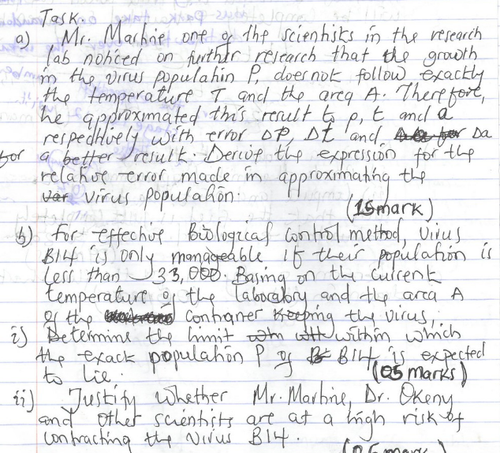 Task.
a) Mr. Martine one of the scientists in the research
lab noticed on further research that the growth
in the virus population P, doesnot follow exactly
the temperature T and the area A. Therefore,
he approximated this result to p, t and a
respectively with error ΔP, Δt and Δa
for a better result. Derive the expression for the
relative error made in approximating the
virus population.
(15mark)
b) For effective Biological control method, virus
B14 is only manageable if their population is
less than 33,000. Basing on the current
temperature of the laboratory and the area A
of the container keeping the virus;
i) Determine the limit within which
the exact population P of B14 is expected
to lie.
(05 marks)
ii) Justify whether Mr. Martine, Dr. Okeny
and other scientists are at a high risk of
contracting the virus B14.